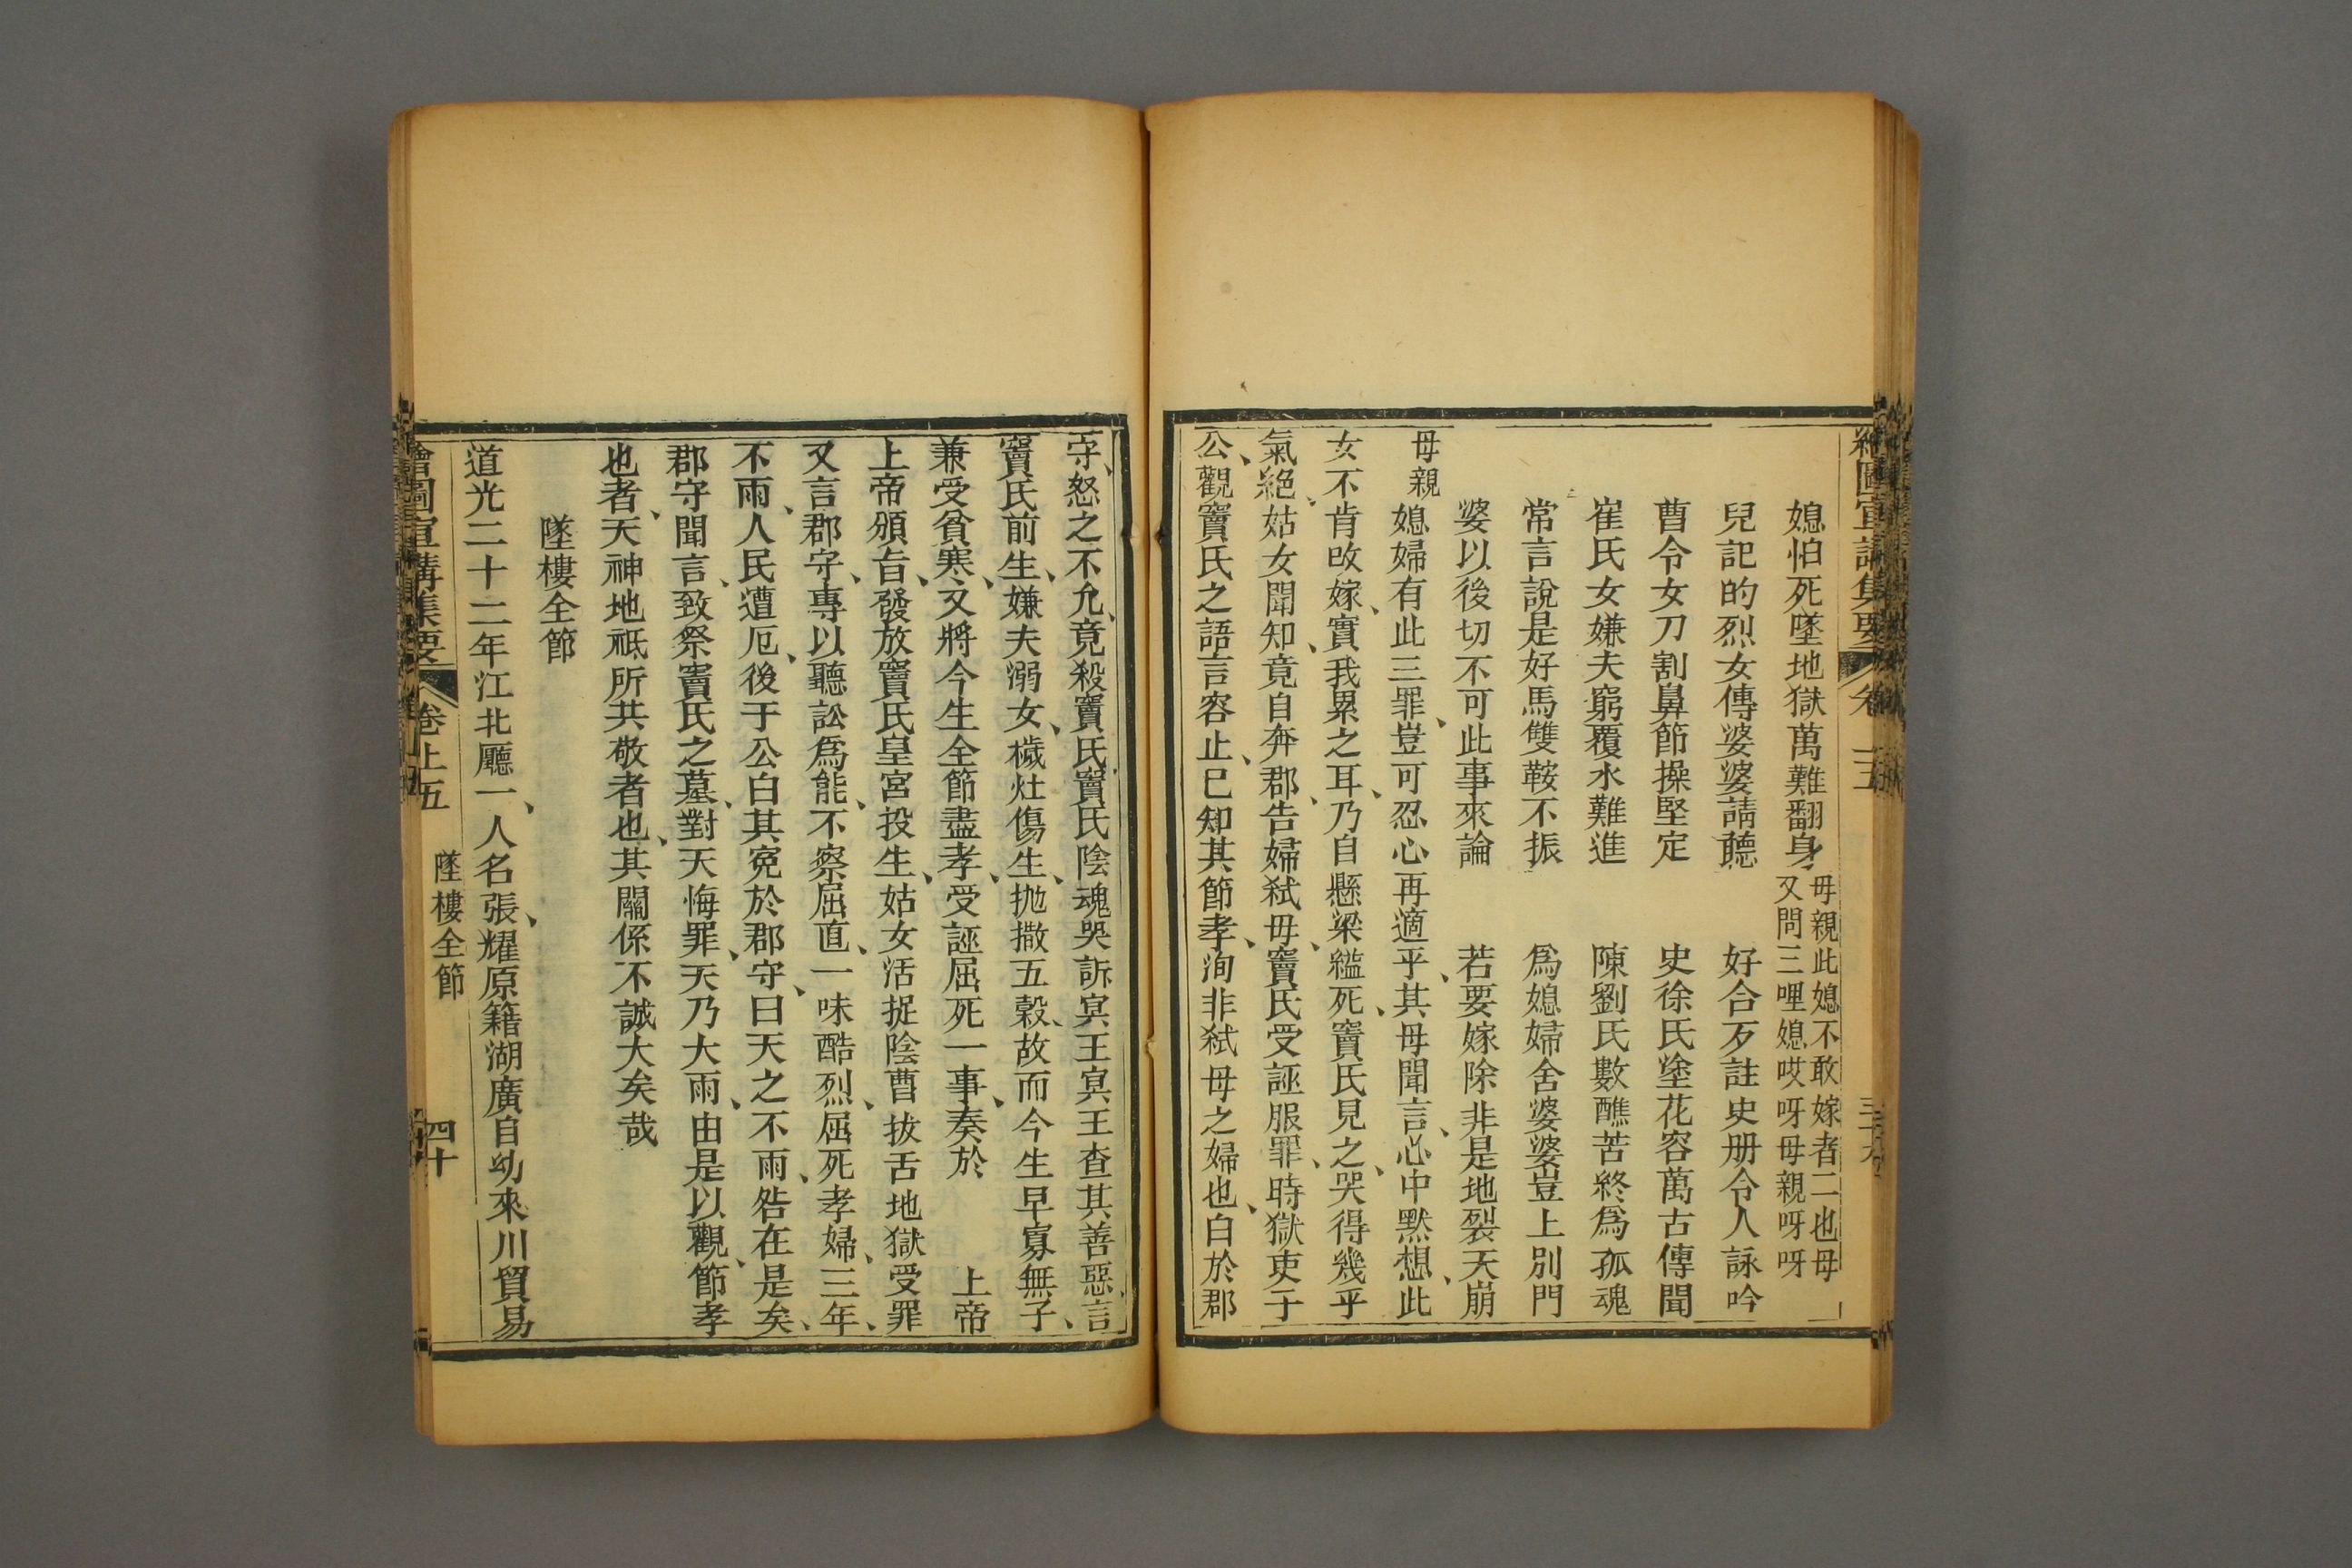 繪圖宣講集要
媳怕死墜地獄萬難翻身 母親此媳不敢嫁者二也母
又問三哩媳哎呀母親呀呀
兒記的烈女傳婆婆請聽 好合歹註史册令人詠吟
曹令女刀割鼻節操堅定 史徐氏塗花容萬古傳聞
崔氏女嫌夫窮覆水難進 陳劉氏數醮苦終爲孤魂
常言說是好馬雙鞍不振 爲媳婦舍婆婆豈上別門
婆以後切不可此事來論 若要嫁除非是地裂天崩
母親媳婦有此三罪、豈可忍心再適乎、其母聞言、心中默想、此
女不肯改嫁、實我累之耳、乃自懸梁縊死、竇氏見之、哭得幾乎
氣絕、姑女聞知、竟自奔郡、告婦弒母、竇氏受誣服罪、時獄吏于
公、觀竇氏之語言容止、已知其節孝、洵非弒母之婦也、白於郡
守、怒之不允、竟殺竇氏竇氏陰魂哭訴冥王冥王查其善惡、言
竇氏前生、嫌夫溺女、穢灶傷生、抛撒五穀、故而今生早寡無子、
兼受貧寒、又將今生全節盡孝、受誣屈死一事、奏於 上帝
上帝頒旨、發放竇氏皇宮投生、姑女活捉陰曹拔舌地獄受罪
又言郡守、專以聽訟爲能、不察屈直、一味酷烈、屈死孝婦、三年、
不雨、人民遭厄、後于公白其寃於郡守、曰天之不雨、咎在是矣、
郡守聞言、致祭竇氏之墓、對天悔罪、天乃大雨、由是以觀、節孝
也者、天神地祇所共敬者也、其關係不誠大矣哉
墜樓全節
道光二十二年江北廳一、人名張、耀原籍湖廣自幼來川貿易
繪圖宣講集要 卷上五 墜樓全節 四十